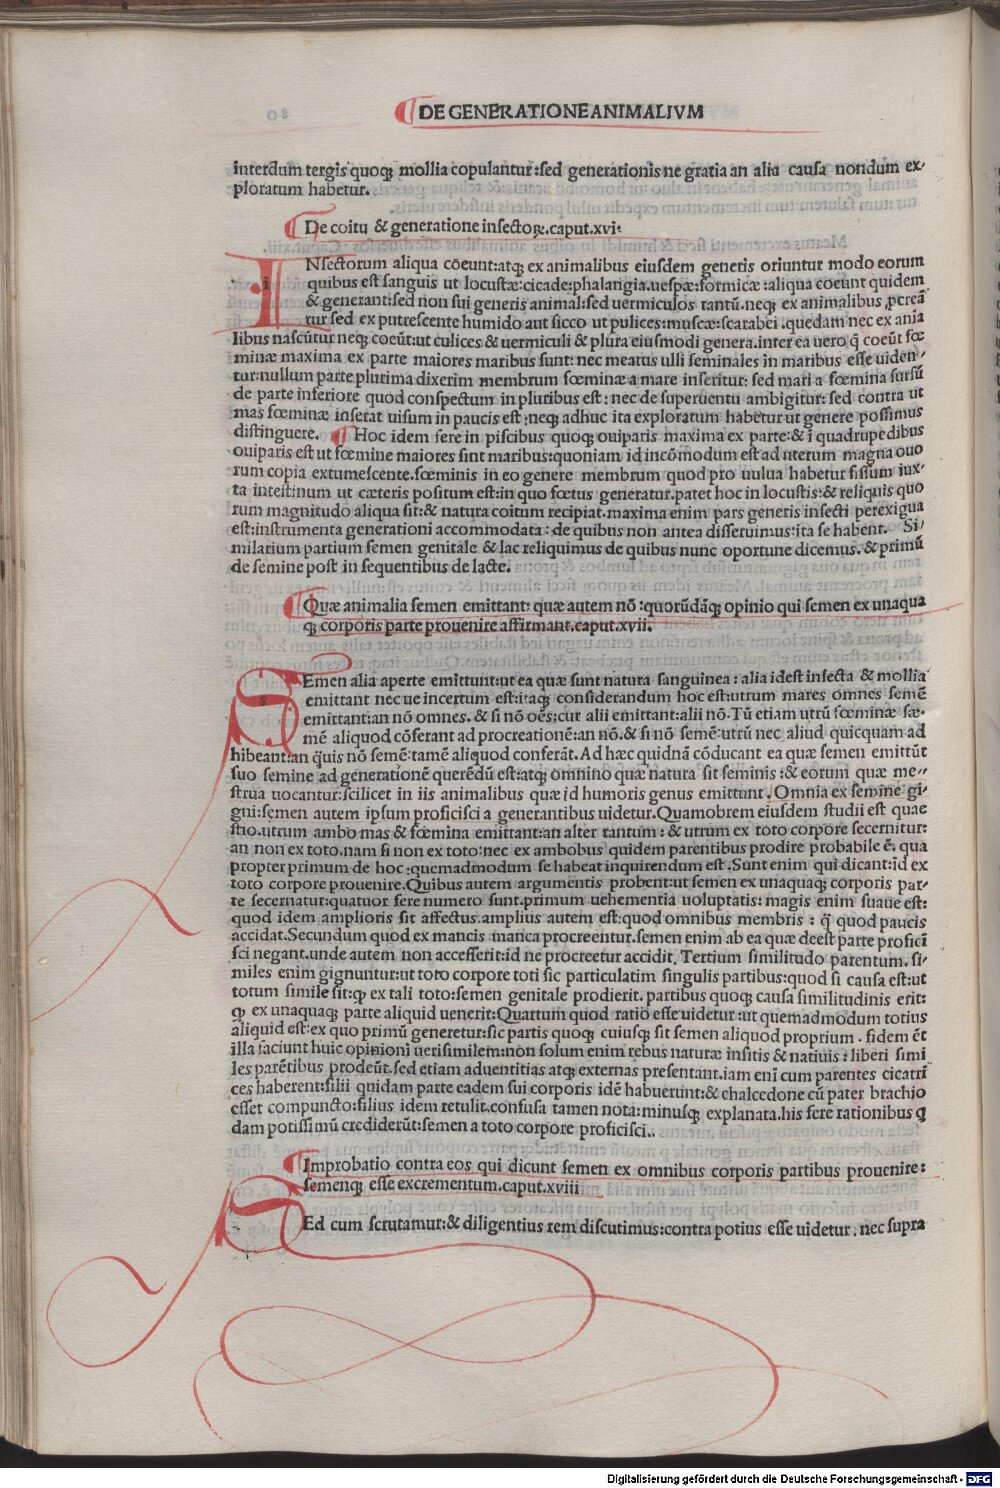 DE GENERATIONE ANIMALIVM
interdum tergis quoqꝫ mollia copulantur:sed generationis ne gratia an alia causa nondum ex-
ploratum habetur.
De coitu & generatione insectoꝝ.caput.xvi.
INsectorum aliqua cōeunt:atqꝫ ex animalibus eiusdem generis oriuntur modo eorum
quibus est sanguis ut locustæ:cicade:phalangia.uespæ:formicæ:aliqua coeunt quidem
& generant:sed non sui generis animal:sed uermiculos tantū.neqꝫ ex animalibus ꝓcreā
tur sed ex putrescente humido aut sicco ut pulices:muscæ:scarabei.quedam nec ex anīa
libus nascūtur neqꝫ coeūt:ut culices & uermiculi & plura eiusmodi genera.inter ea uero q̄ coeūt fœ
minæ maxima ex parte maiores maribus sunt: nec meatus ulli seminales in maribus esse uiden-
tur:nullum parte plurima dixerim membrum fœminæ a mare inseritur: sed mari a fœmina sursū
de parte inferiore quod conspectum in pluribus est: nec de superuentu ambigitur: sed contra ut
mas fœminæ inserat uisum in paucis est:neqꝫ adhuc ita exploratum habetur ut genere possimus
distinguere. Hoc idem fere in piscibus quoqꝫ ouiparis maxima ex parte:& ī quadrupedibus
ouiparis est ut fœmine maiores sint maribus:quoniam id incōmodum est ad uterum magna ouo
rum copia extumescente.fœminis in eo genere membrum quod pro uulua habetur fissum iux-
ta intestinum ut cæteris positum est:in quo fœtus generatur.patet hoc in locustis:& reliquis quo
rum magnitudo aliqua sit:& natura coitum recipiat.maxima enim pars generis insecti perexigua
est:instrumenta generationi accommodata: de quibus non antea disseruimus:ita se habent. Si-
milarium partium semen genitale & lac reliquimus de quibus nunc oportune dicemus.& primū
de semine post in sequentibus de lacte.
Quæ animalia semen emittant: quæ autem nō:quorūdāqꝫ opinio qui semen ex unaqua
qꝫ corporis parte prouenire affirmant.caput.xvii.
SEmen alia aperte emittunt:ut ea quæ sunt natura sanguinea: alia idest insecta & mollia
emittant nec ue incertum est:itaqꝫ considerandum hoc est:utrum mares omnes semē
emittant:an nō omnes. & si nō oēs:cur alii emittant:alii nō.Tū etiam utrū fœminæ sæ-
mē aliquod cōferant ad procreationē:an nō.& si nō semē:utrū nec aliud quicquam ad
hibeant:an q̄uis nō semē:tamē aliquod conferāt.Ad hæc quidnā cōducant ea quæ semen emittūt
suo semine ad generationē querēdū est:atqꝫ omnino quæ natura sit seminis:& eorum quæ me-
strua uocantur:scilicet in iis animalibus quæ id humoris genus emittunt.Omnia ex semine gi-
gni:semen autem ipsum proficisci a generantibus uidetur.Quamobrem eiusdem studii est quæ
stio.utrum ambo mas & fœmina emittant:an alter tantum: & utrum ex toto corpore secernitur:
an non ex toto.nam si non ex toto:nec ex ambobus quidem parentibus prodire probabile ē. qua
propter primum de hoc:quemadmodum se habeat inquirendum est.Sunt enim qui dicant:id ex
toto corpore prouenire.Quibus autem argumentis probent:ut semen ex unaquaqꝫ corporis par-
te secernatur:quatuor fere numero sunt.primum uehementia uoluptatis: magis enim suaue est:
quod idem amplioris sit affectus.amplius autem est:quod omnibus membris: q̄ quod paucis
accidat.Secundum quod ex mancis manca procreentur.semen enim ab ea quæ deest parte profici
sci negant.unde autem non accesserit:id ne procreetur accidit. Tertium similitudo parentum. si-
miles enim gignuntur:ut toto corpore toti sic particulatim singulis partibus:quod si causa est:ut
totum simile sit:ꝙ ex tali toto:semen genitale prodierit. partibus quoqꝫ causa similitudinis erit:
ꝙ ex unaquaqꝫ parte aliquid uenerit:Quartum quod ratio esse uidetur:ut quemadmodum totius
aliquid est:ex quo primū generetur:sic partis quoqꝫ cuiusqꝫ sit semen aliquod proprium. fidem ēt
illa faciunt huic opinioni uerisimilem:non solum enim rebus naturæ insitis & natiuis: liberi simi
les parētibus prodeūt.sed etiam aduentitias atqꝫ externas presentant.iam enī cum parentes cicatri
ces haberent:filii quidam parte eadem sui corporis idē habuerunt:& chalcedone cū pater brachio
esset compuncto:filius idem retulit.confusa tamen nota:minusqꝫ explanata.his fere rationibus q
dam potissimū crediderūt:semen a toto corpore proficisci..
Improbatio contra eos qui dicunt semen ex omnibus corporis partibus prouenire:
semenqꝫ esse excrementum.caput.xviii
SEd cum scrutamur:& diligentius rem discutimus:contra potius esse uidetur. nec supra
Digitalisierung gefördert durch die Deutsche Forschungsgemeinschaft - DFG